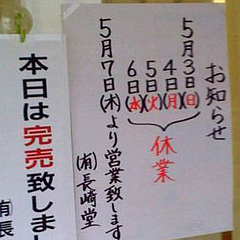 お知らせ
5月3日(日)
4日(月)
5日(火)
6日(水)
休業
5月7日(木)より営業致します
(有)長崎堂
本日は完売致しまし
(有)長